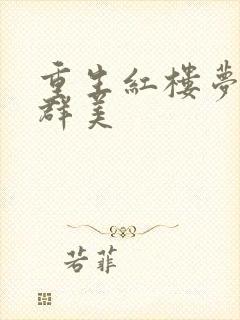 重生紅樓夢
群美
若菲